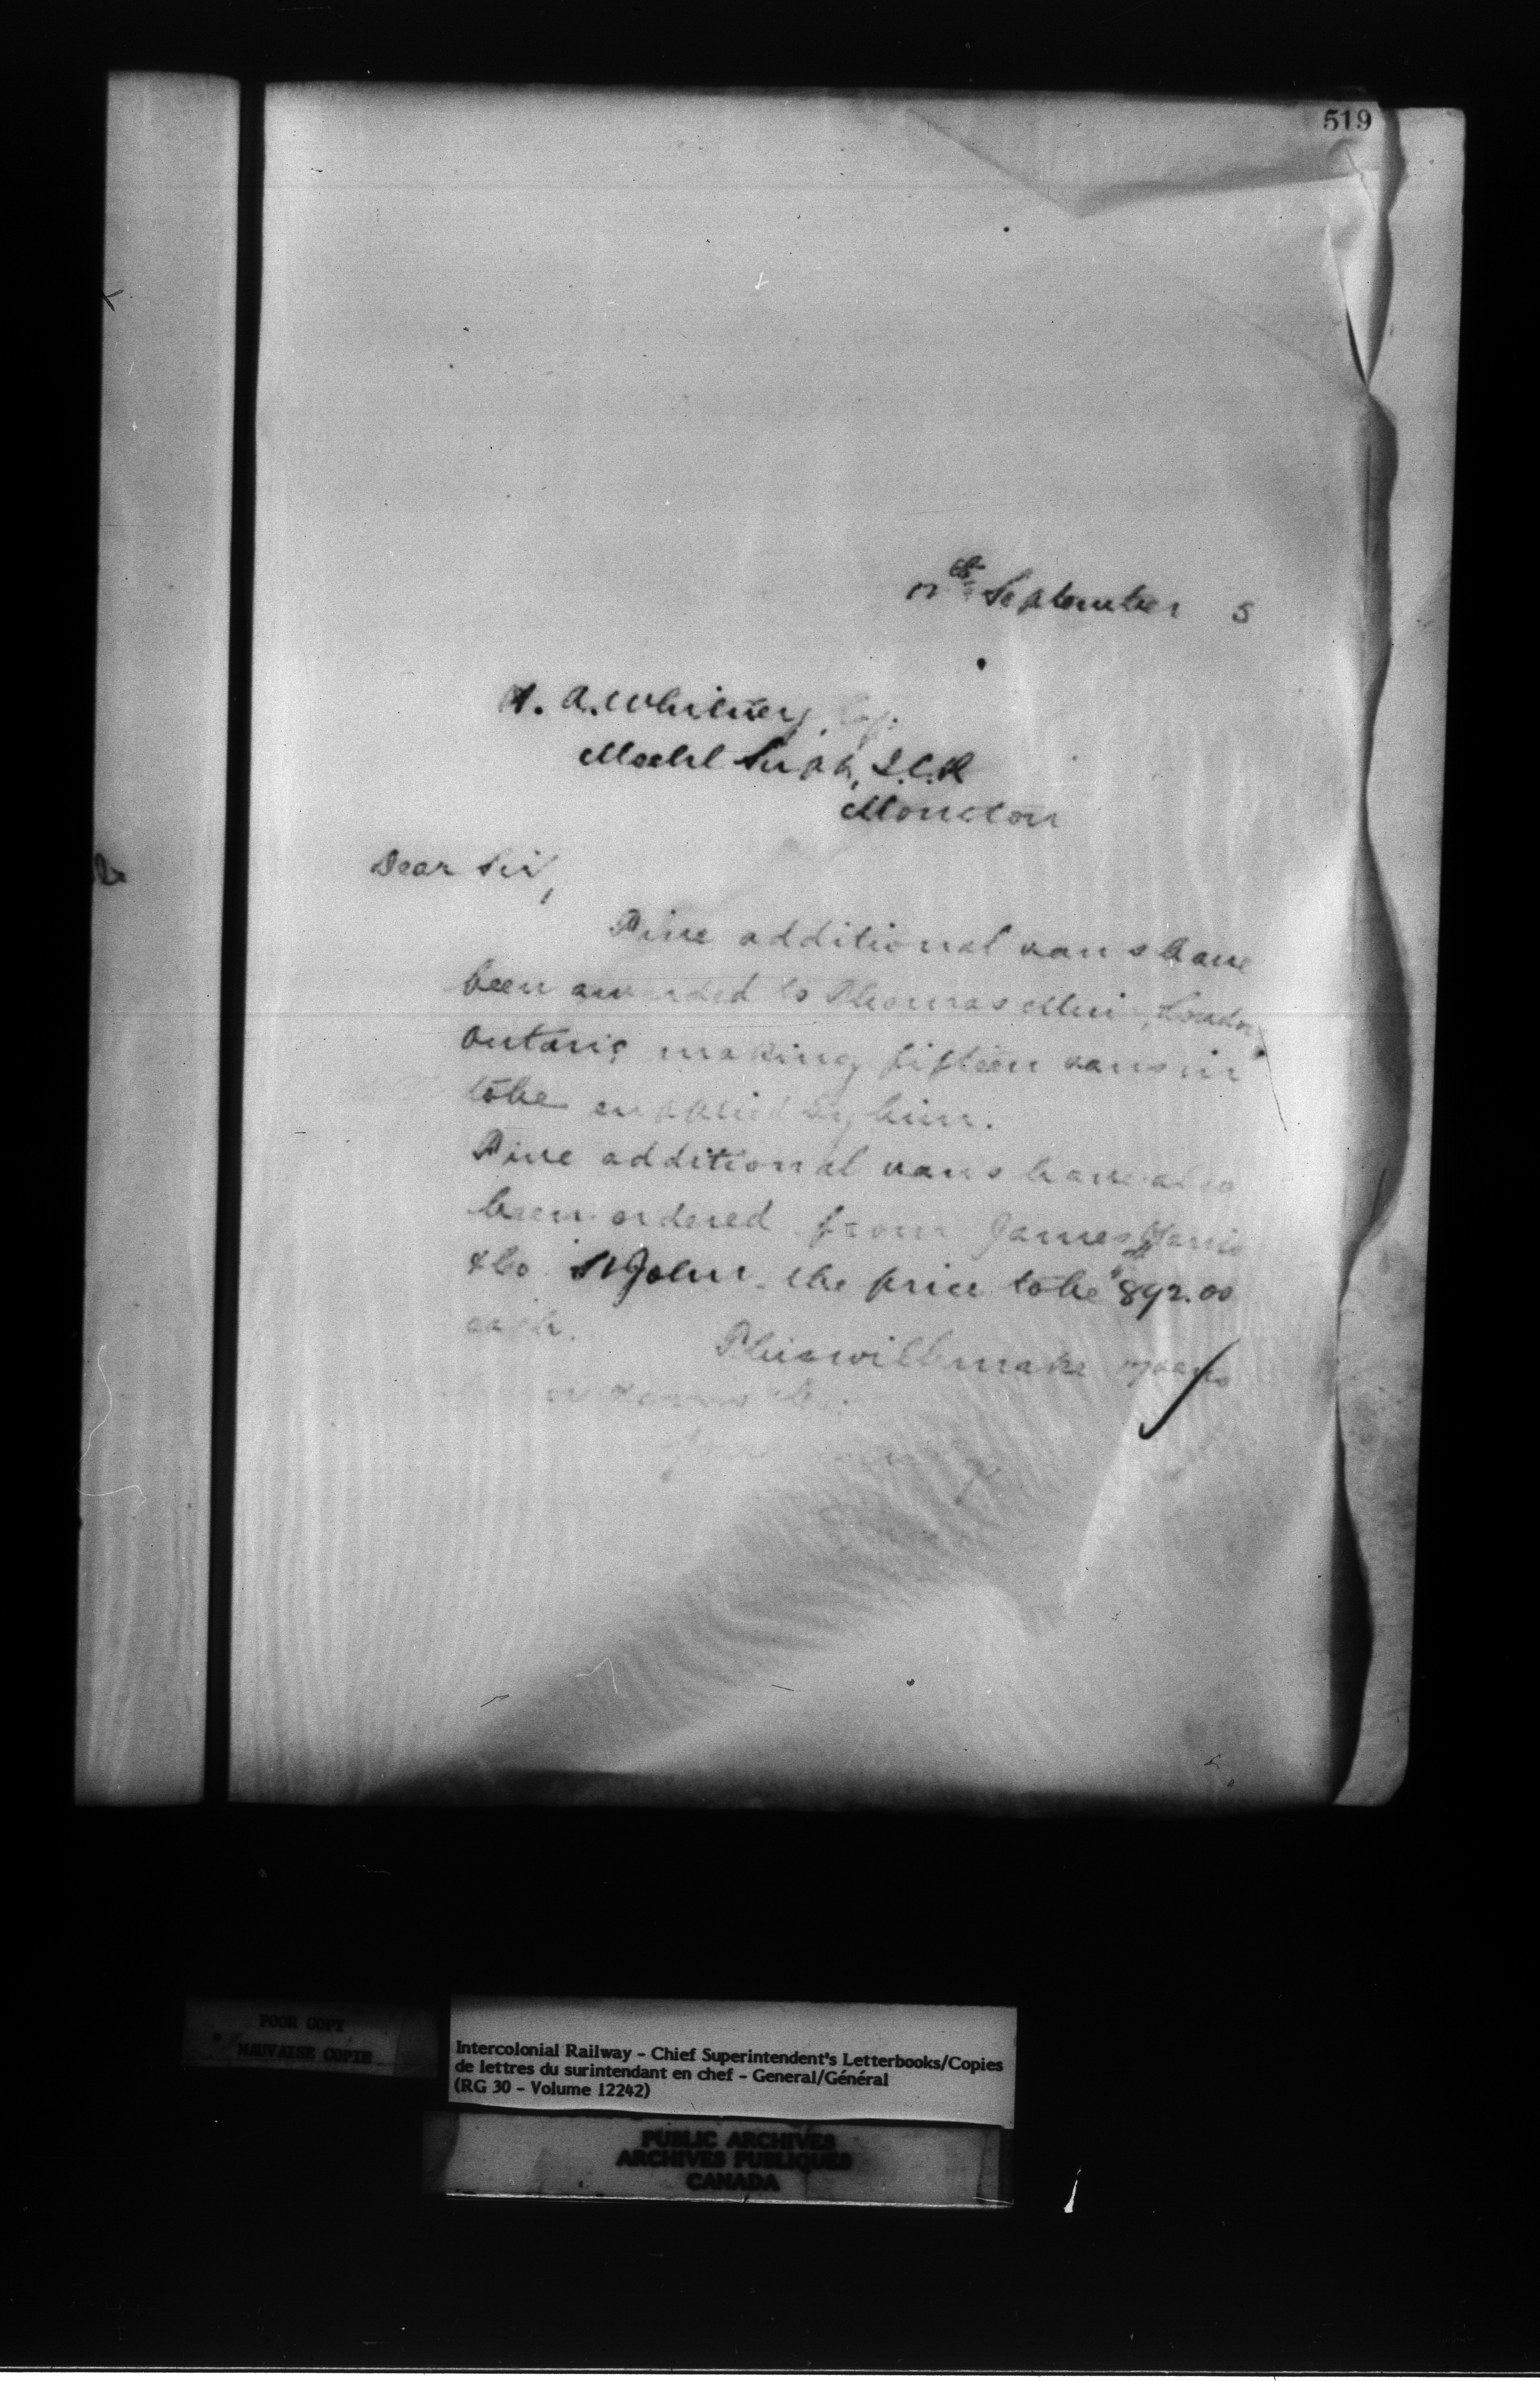 519
th September 5
A. Whitney
Mechl Supt, I.C.R
Moncton
Dear Sir,
Five additional vans have
been awarded to Thomas Muir, London
Ontario making fifteen vans in
to be supplied by him.
Five additional vans have also
been ordered from James Harris
& Co St John the price to be $892.00
each.
This will make vans
POOR COPY
MAUVAISE COPIE
Intercolonial Railway - Chief Superintendent's Letterbooks/Copies
de lettres du surintendant en chef - General/Général
(RG 30 - Volume 12242)
PUBLIC ARCHIVES
ARCHIVES PUBLIQUES
CANADA